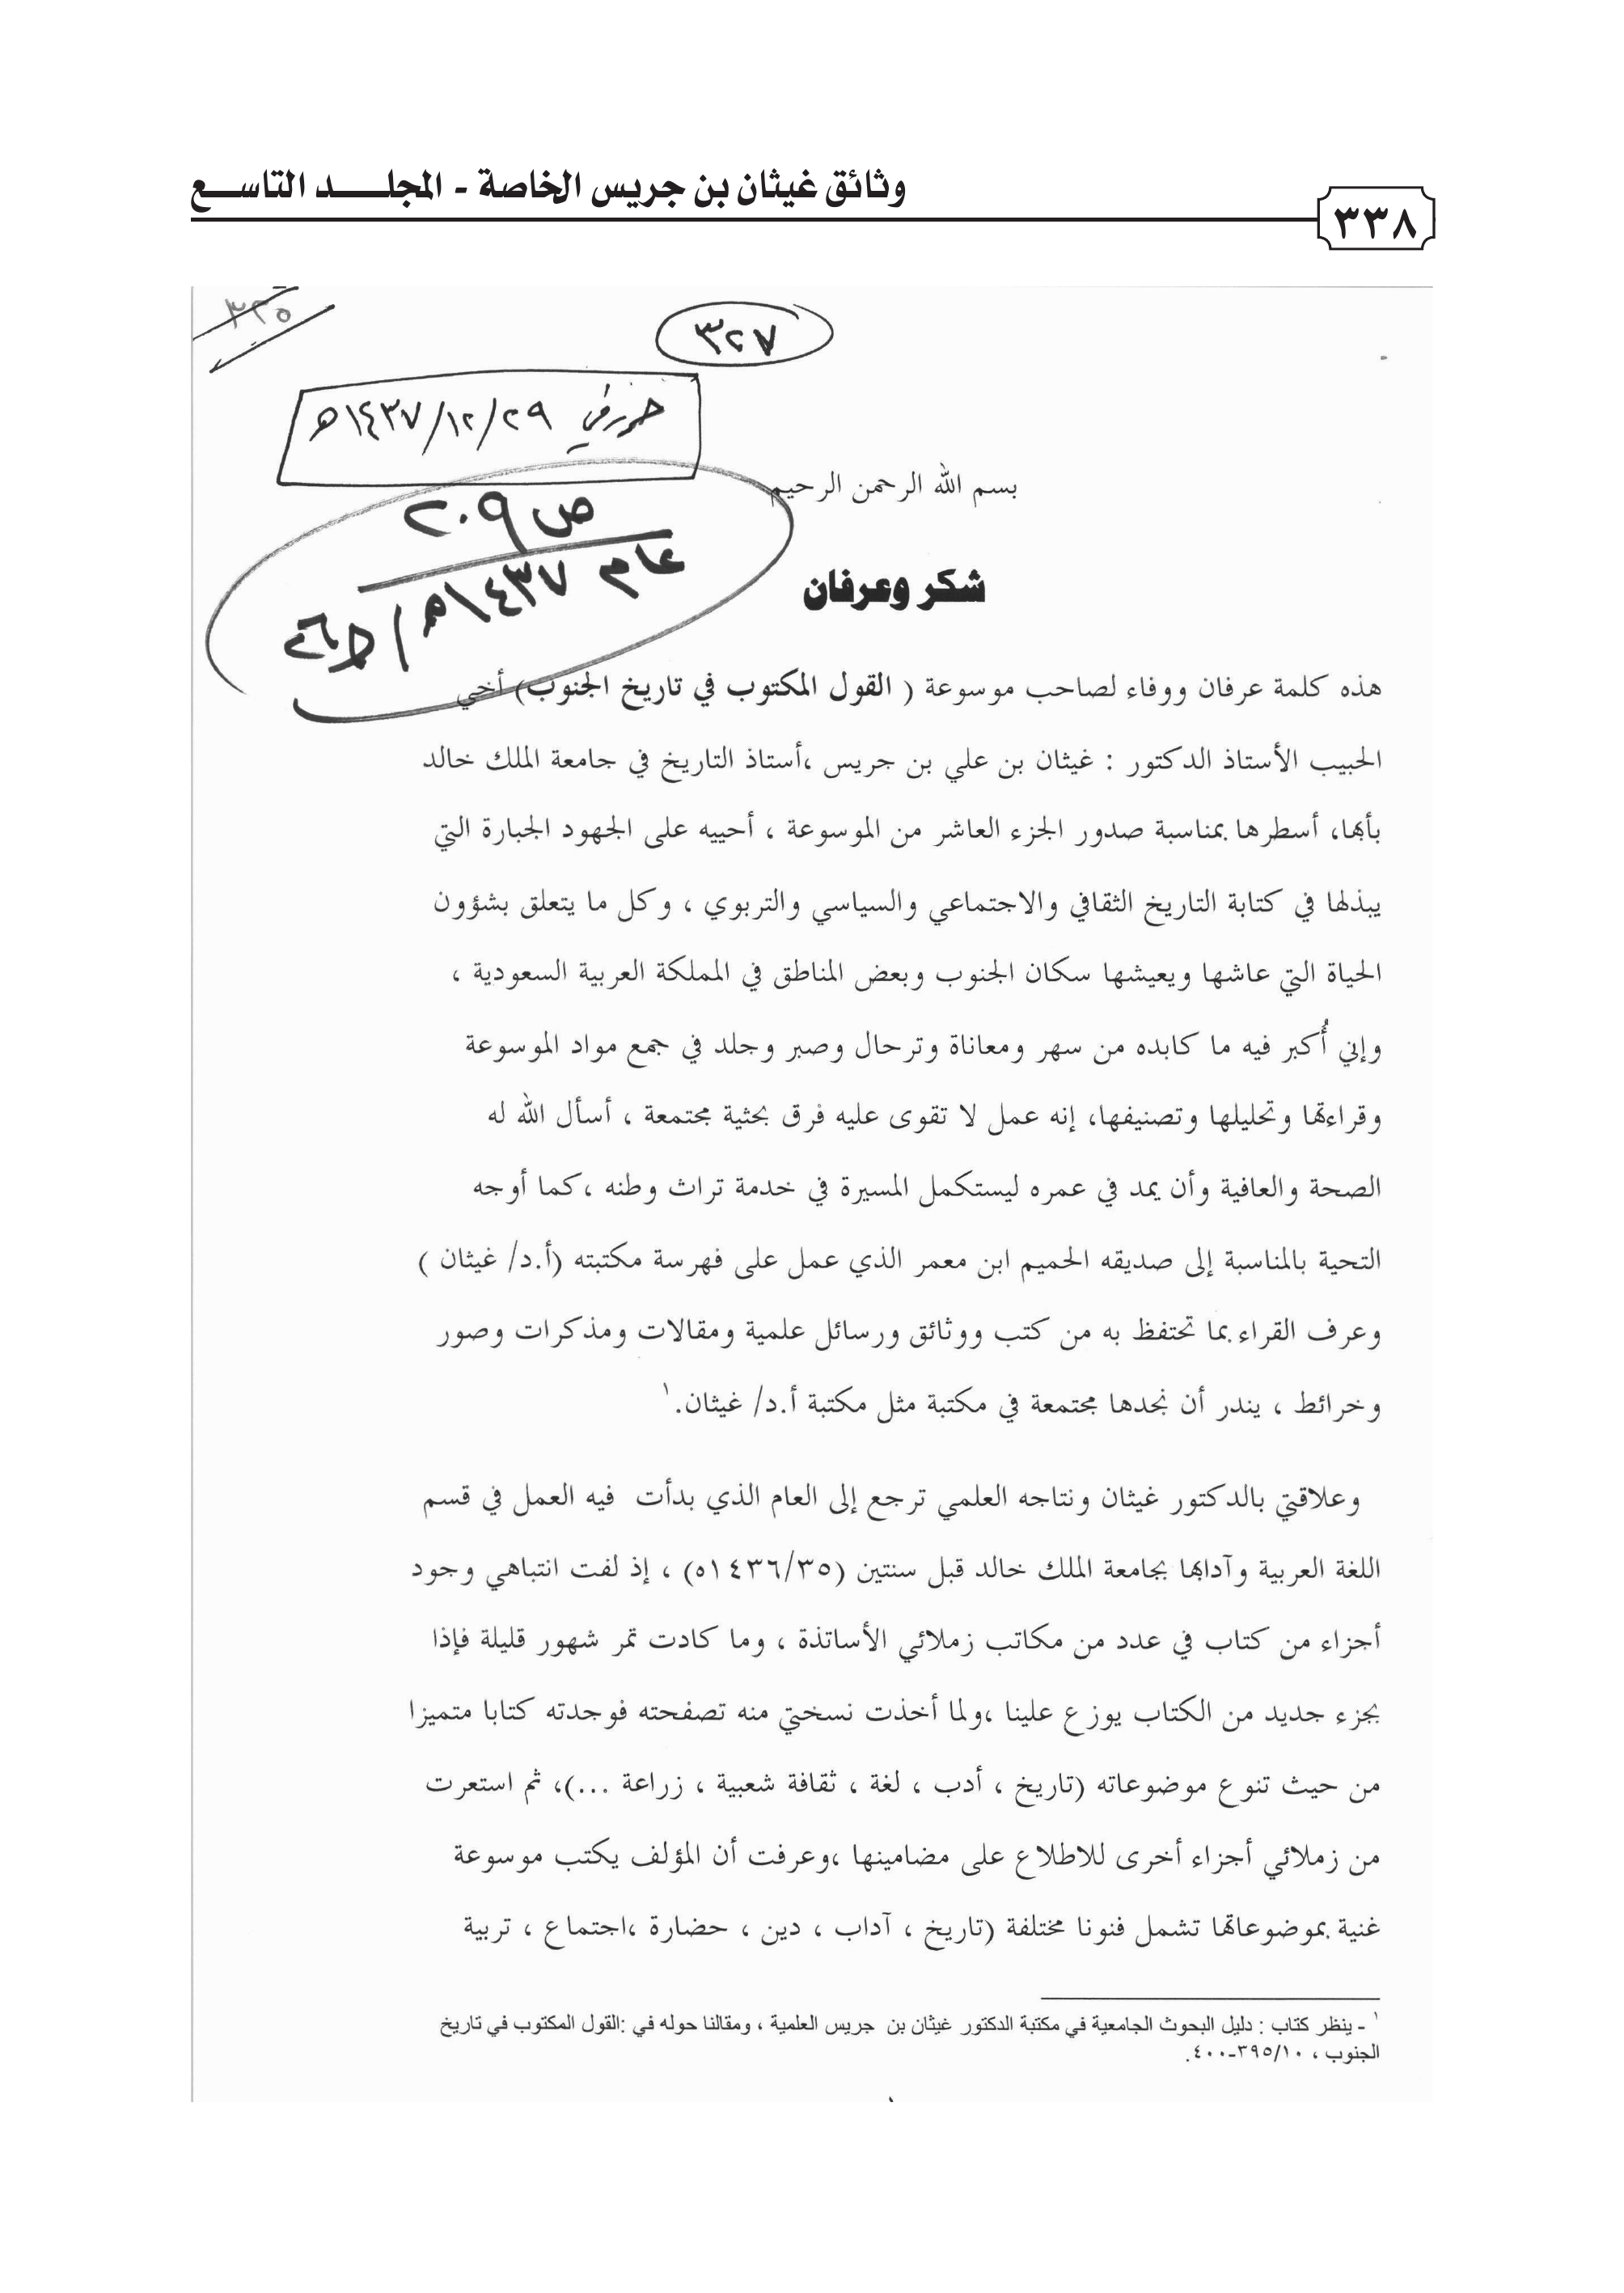 وثائق غيثان بن جريس الخاصة - المجلـــــد التاســـع
٣٣٨
٣٢٥
٣٢٧
حرر في ٢٩/١٢/١٤٣٧هـ
بسم الله الرحمن الرحيم
ص ٢٠٩
عام ١٤٣٧هـ/
شكر وعرفان
هذه كلمة عرفان ووفاء لصاحب موسوعة ( القول المكتوب في تاريخ الجنوب) أخي
الحبيب الأستاذ الدكتور : غيثان بن علي بن جريس ،أستاذ التاريخ في جامعة الملك خالد
بأبها، أسطرها بمناسبة صدور الجزء العاشر من الموسوعة ، أحييه على الجهود الجبارة التي
يبذلها في كتابة التاريخ الثقافي والاجتماعي والسياسي والتربوي ، وكل ما يتعلق بشؤون
الحياة التي عاشها ويعيشها سكان الجنوب وبعض المناطق في المملكة العربية السعودية ،
وإني أُكبر فيه ما كابده من سهر ومعاناة وترحال وصبر وجلد في جمع مواد الموسوعة
وقراءتها وتحليلها وتصنيفها، إنه عمل لا تقوى عليه فرق بحثية مجتمعة ، أسأل الله له
الصحة والعافية وأن يمد في عمره ليستكمل المسيرة في خدمة تراث وطنه ،كما أوجه
التحية بالمناسبة إلى صديقه الحميم ابن معمر الذي عمل على فهرسة مكتبته (أ.د/ غيثان )
وعرف القراء بما تحتفظ به من كتب ووثائق ورسائل علمية ومقالات ومذكرات وصور
وخرائط ، يندر أن نجدها مجتمعة في مكتبة مثل مكتبة أ.د/ غيثان.١
وعلاقتي بالدكتور غيثان ونتاجه العلمي ترجع إلى العام الذي بدأت فيه العمل في قسم
اللغة العربية وآدابها بجامعة الملك خالد قبل سنتين (١٤٣٦/٣٥ه) ، إذ لفت انتباهي وجود
أجزاء من كتاب في عدد من مكاتب زملائي الأساتذة ، وما كادت تمر شهور قليلة فإذا
بجزء جديد من الكتاب يوزع علينا ،ولما أخذت نسختي منه تصفحته فوجدته كتابا متميزا
من حيث تنوع موضوعاته (تاريخ ، أدب ، لغة ، ثقافة شعبية ، زراعة ...)، ثم استعرت
من زملائي أجزاء أخرى للاطلاع على مضامينها ،وعرفت أن المؤلف يكتب موسوعة
غنية بموضوعاتها تشمل فنونا مختلفة (تاريخ ، آداب ، دين ، حضارة ،اجتماع ، تربية
١ - ينظر كتاب : دليل البحوث الجامعية في مكتبة الدكتور غيثان بن جريس العلمية ، ومقالنا حوله في :القول المكتوب في تاريخ
الجنوب ، ٣٩٥/١٠-٤٠٠.